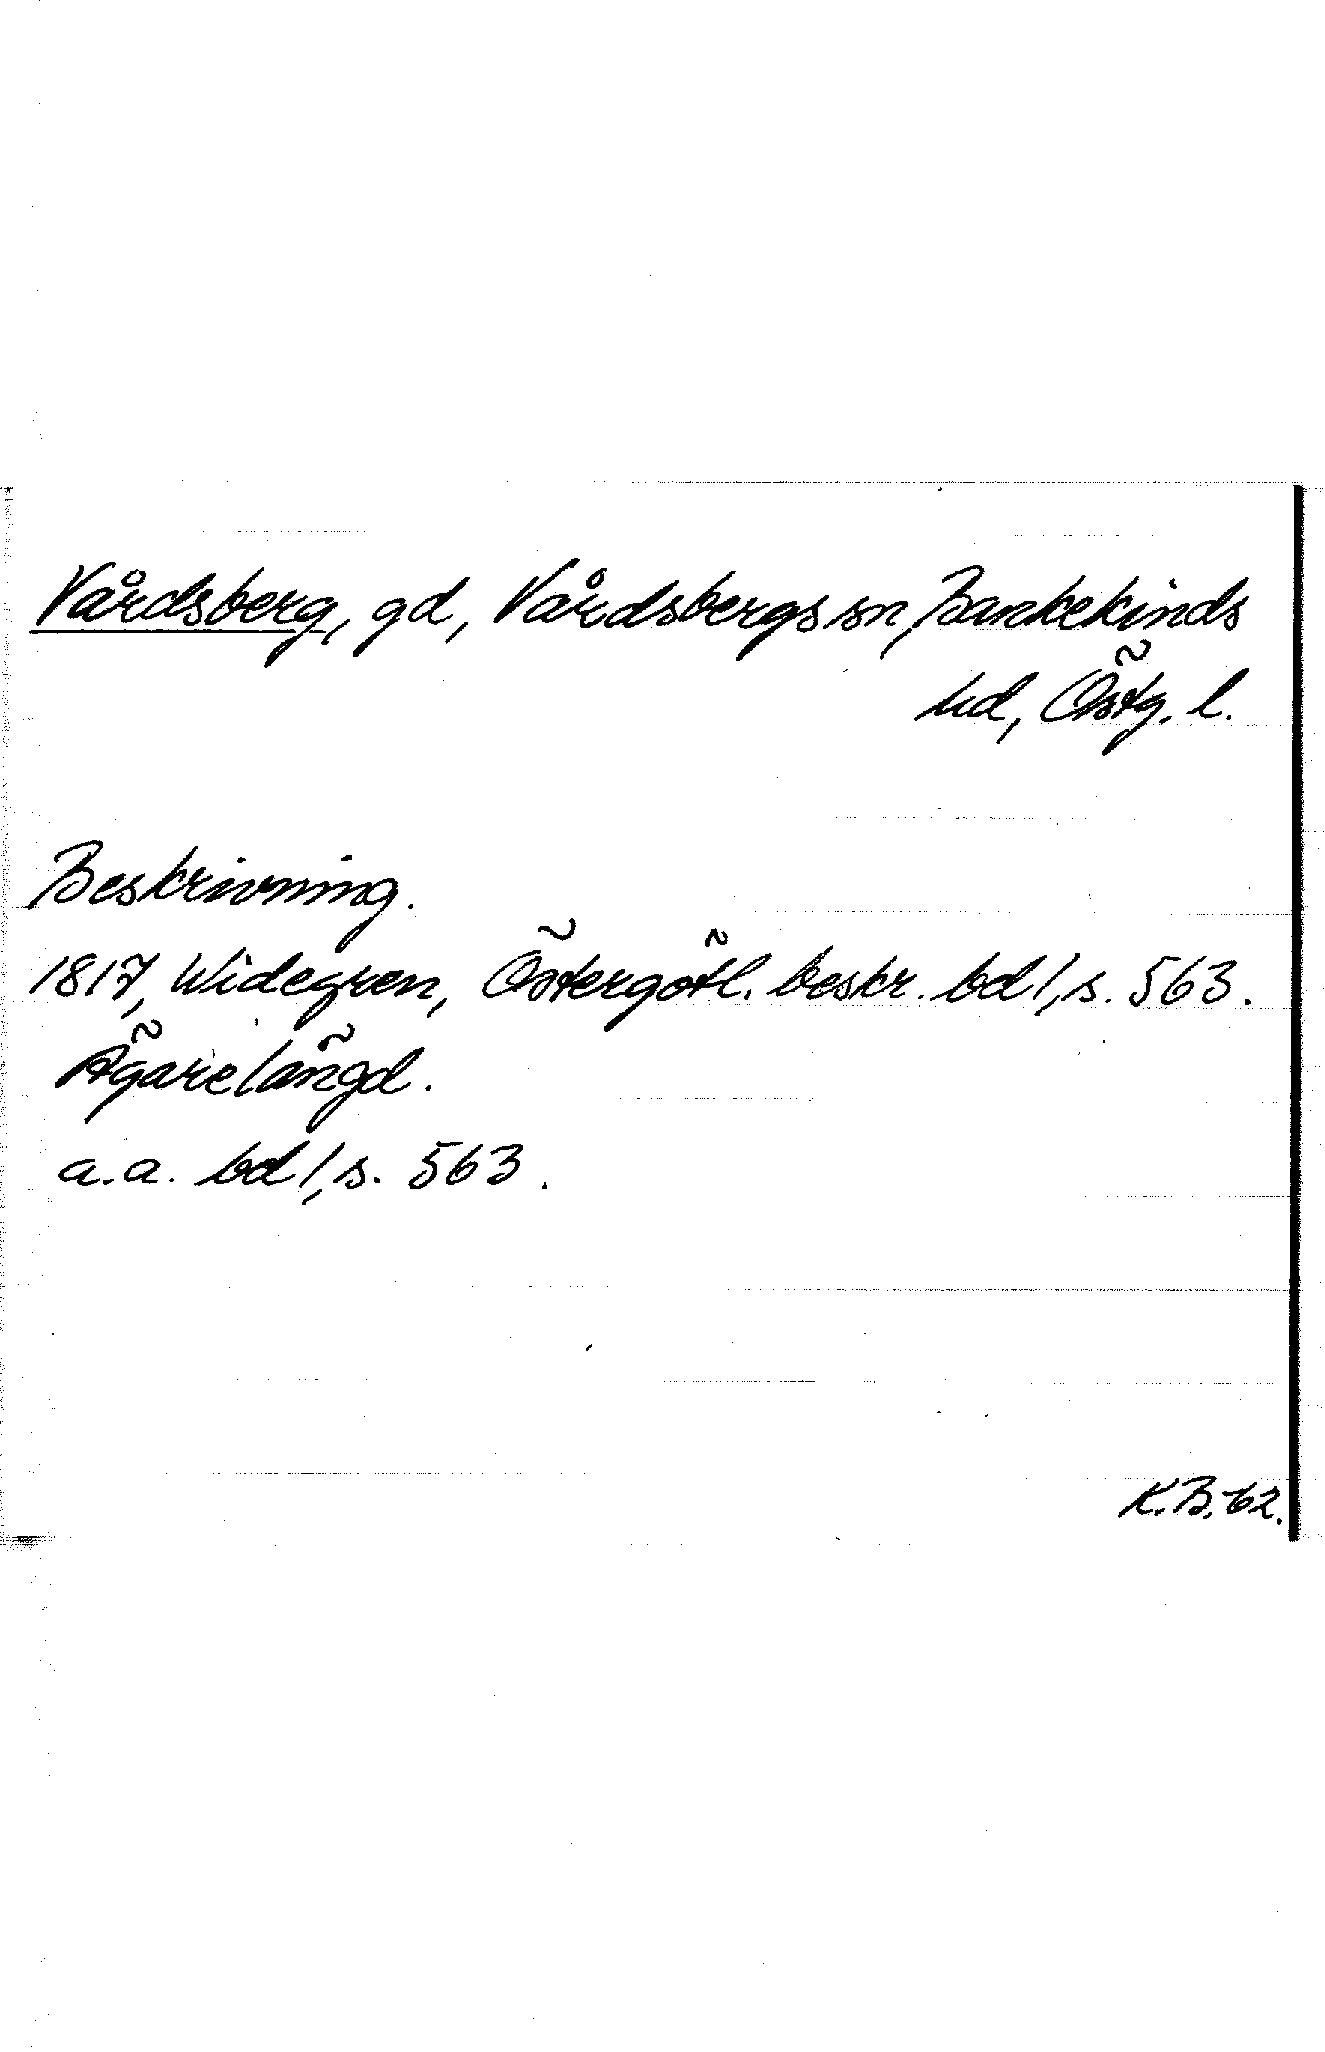 Vårdsberg, gd, Vårdsbergs sn, Bankekinds
hd, Östg. l.
Beskrivning.
1817, Widegren, Östergötl. beskr. bd 1, s. 563.
Ägarelängd.
a.a. bd 1, s. 563.
K.B. 62.